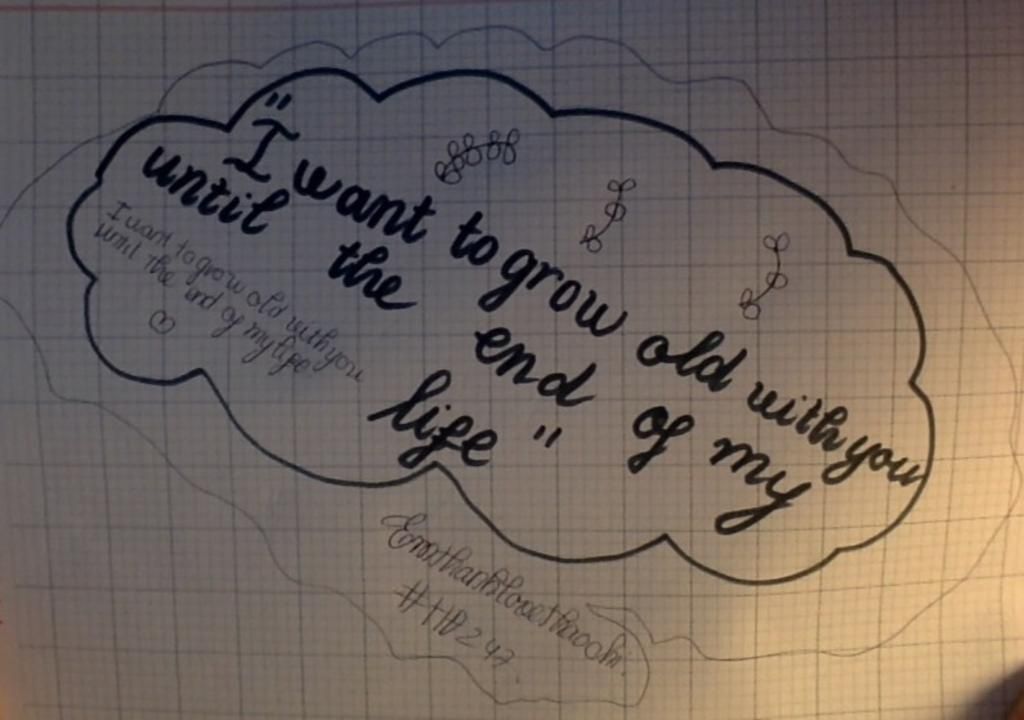 "I want to grow old with you
until the end of my
life"
I want to grow old with you
until the end of my life
#HP247